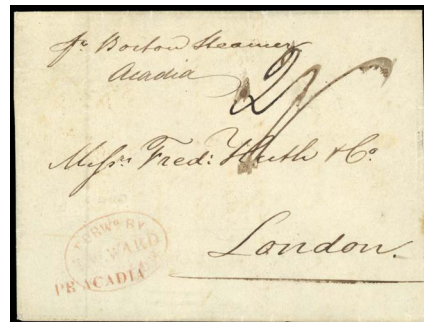 pr Boston Steamer
Acadia
2/
Messrs. Fredk: Huth & Co.
London.
FORWd BY
WARD
PR ACADIA